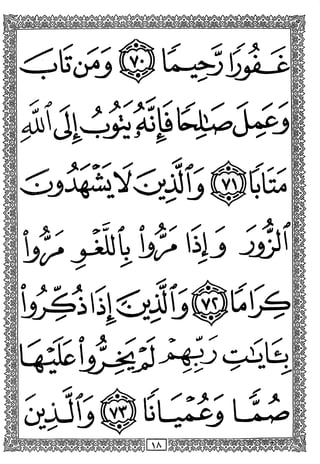 غَفُورًا رَّحِيمًا ٧٠ وَمَن تَابَ
وَعَمِلَ صَٰلِحًا فَإِنَّهُۥ يَتُوبُ إِلَى ٱللَّهِ
مَتَابًا ٧١ وَٱلَّذِينَ لَا يَشْهَدُونَ
ٱلزُّورَ وَإِذَا مَرُّوا۟ بِٱللَّغْوِ مَرُّوا۟
كِرَامًا ٧٢ وَٱلَّذِينَ إِذَا ذُكِّرُوا۟
بِـَٔايَٰتِ رَبِّهِمْ لَمْ يَخِرُّوا۟ عَلَيْهَا
صُمًّا وَعُمْيَانًا ٧٣ وَٱلَّذِينَ
١٨